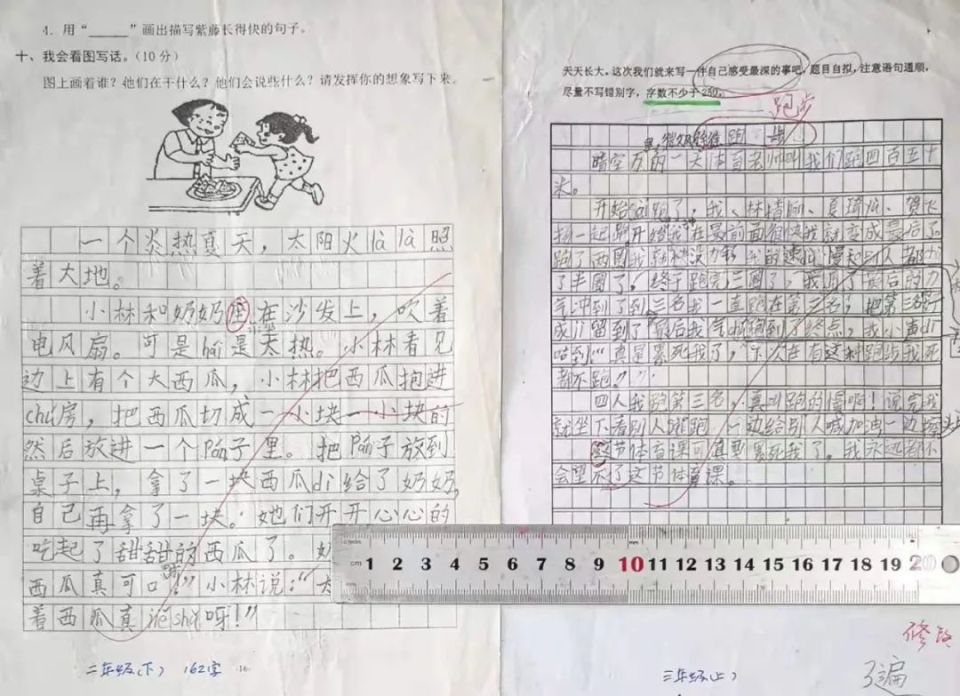 4. 用“______”画出描写紫藤长得快的句子。
十、我会看图写话。(10分)
图上画着谁？他们在干什么？他们会说些什么？请发挥你的想象写下来。
一个炎热夏天，太阳火là là照
着大地。
小林和奶奶在沙发上，吹着
电风扇。可是hái是太热。小林看见
边上有个大西瓜，小林把西瓜抱进
chú房，把西瓜切成一小块一小块的
然后放进一个pán子里。把pán子放到
桌子上，拿了一块西瓜dì给了奶奶，
自己再拿了一块。她们开开心心的
吃起了甜甜的西瓜了。
西瓜真可口！”小林说：“
着西瓜真jiě shǔ呀！”
二年级(下) 162字
天天长大，这次我们就来写一件自己感受最深的事吧，题目自拟，注意语句通顺，
尽量不写错别字，字数不少于250。
跑步
跑步
一天体育老师叫我们跑四百五十
米。
开始跑了，我、林
一起跑开始我在最前面
跑了两圈我
了半圈了，终于跑完三圈了，我
气冲到了到三名我一直跑在第三名，把第三
成jì留到了最后我到了终点，我小声dī
咕到：“真是累死我了，下次在有这种跑步我死
都不跑。”
四人我跑第三名，真叫跑的慢啊！说完我
就坐下看别人跑，一边给别人喊加油一边
这节体育课可真要累死我了，我永远都不
会望不了这节体育课。
cm 1 2 3 4 5 6 7 8 9 10 11 12 13 14 15 16 17 18 19 20
三年级(上)
修改
3遍